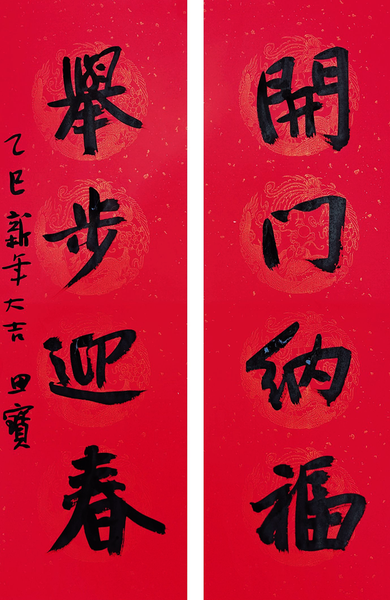 開门纳福
舉步迎春
乙巳新年大吉 寶